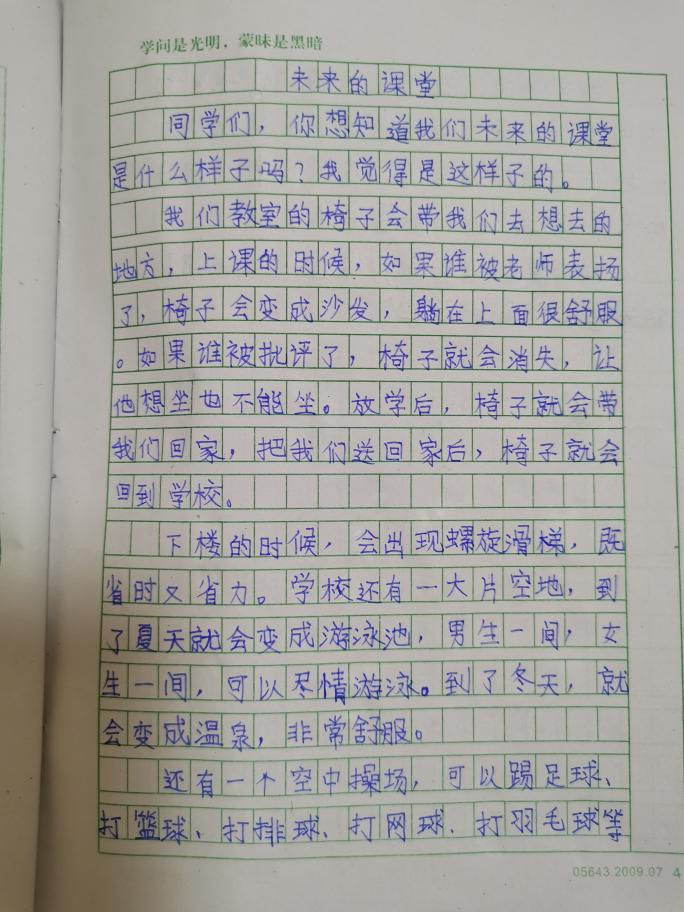 学问是光明，蒙昧是黑暗
未来的课堂
同学们，你想知道我们未来的课堂
是什么样子吗？我觉得是这样子的。
我们教室的椅子会带我们去想去的
地方，上课的时候，如果谁被老师表扬
了，椅子会变成沙发，躺在上面很舒服
。如果谁被批评了，椅子就会消失，让
他想坐也不能坐。放学后，椅子就会带
我们回家，把我们送回家后，椅子就会
回到学校。
下楼的时候，会出现螺旋滑梯，既
省时又省力。学校还有一大片空地，到
了夏天就会变成游泳池，男生一间，女
生一间，可以尽情游泳。到了冬天，就
会变成温泉，非常舒服。
还有一个空中操场，可以踢足球、
打篮球、打排球、打网球、打羽毛球等
05643.2009.07 4